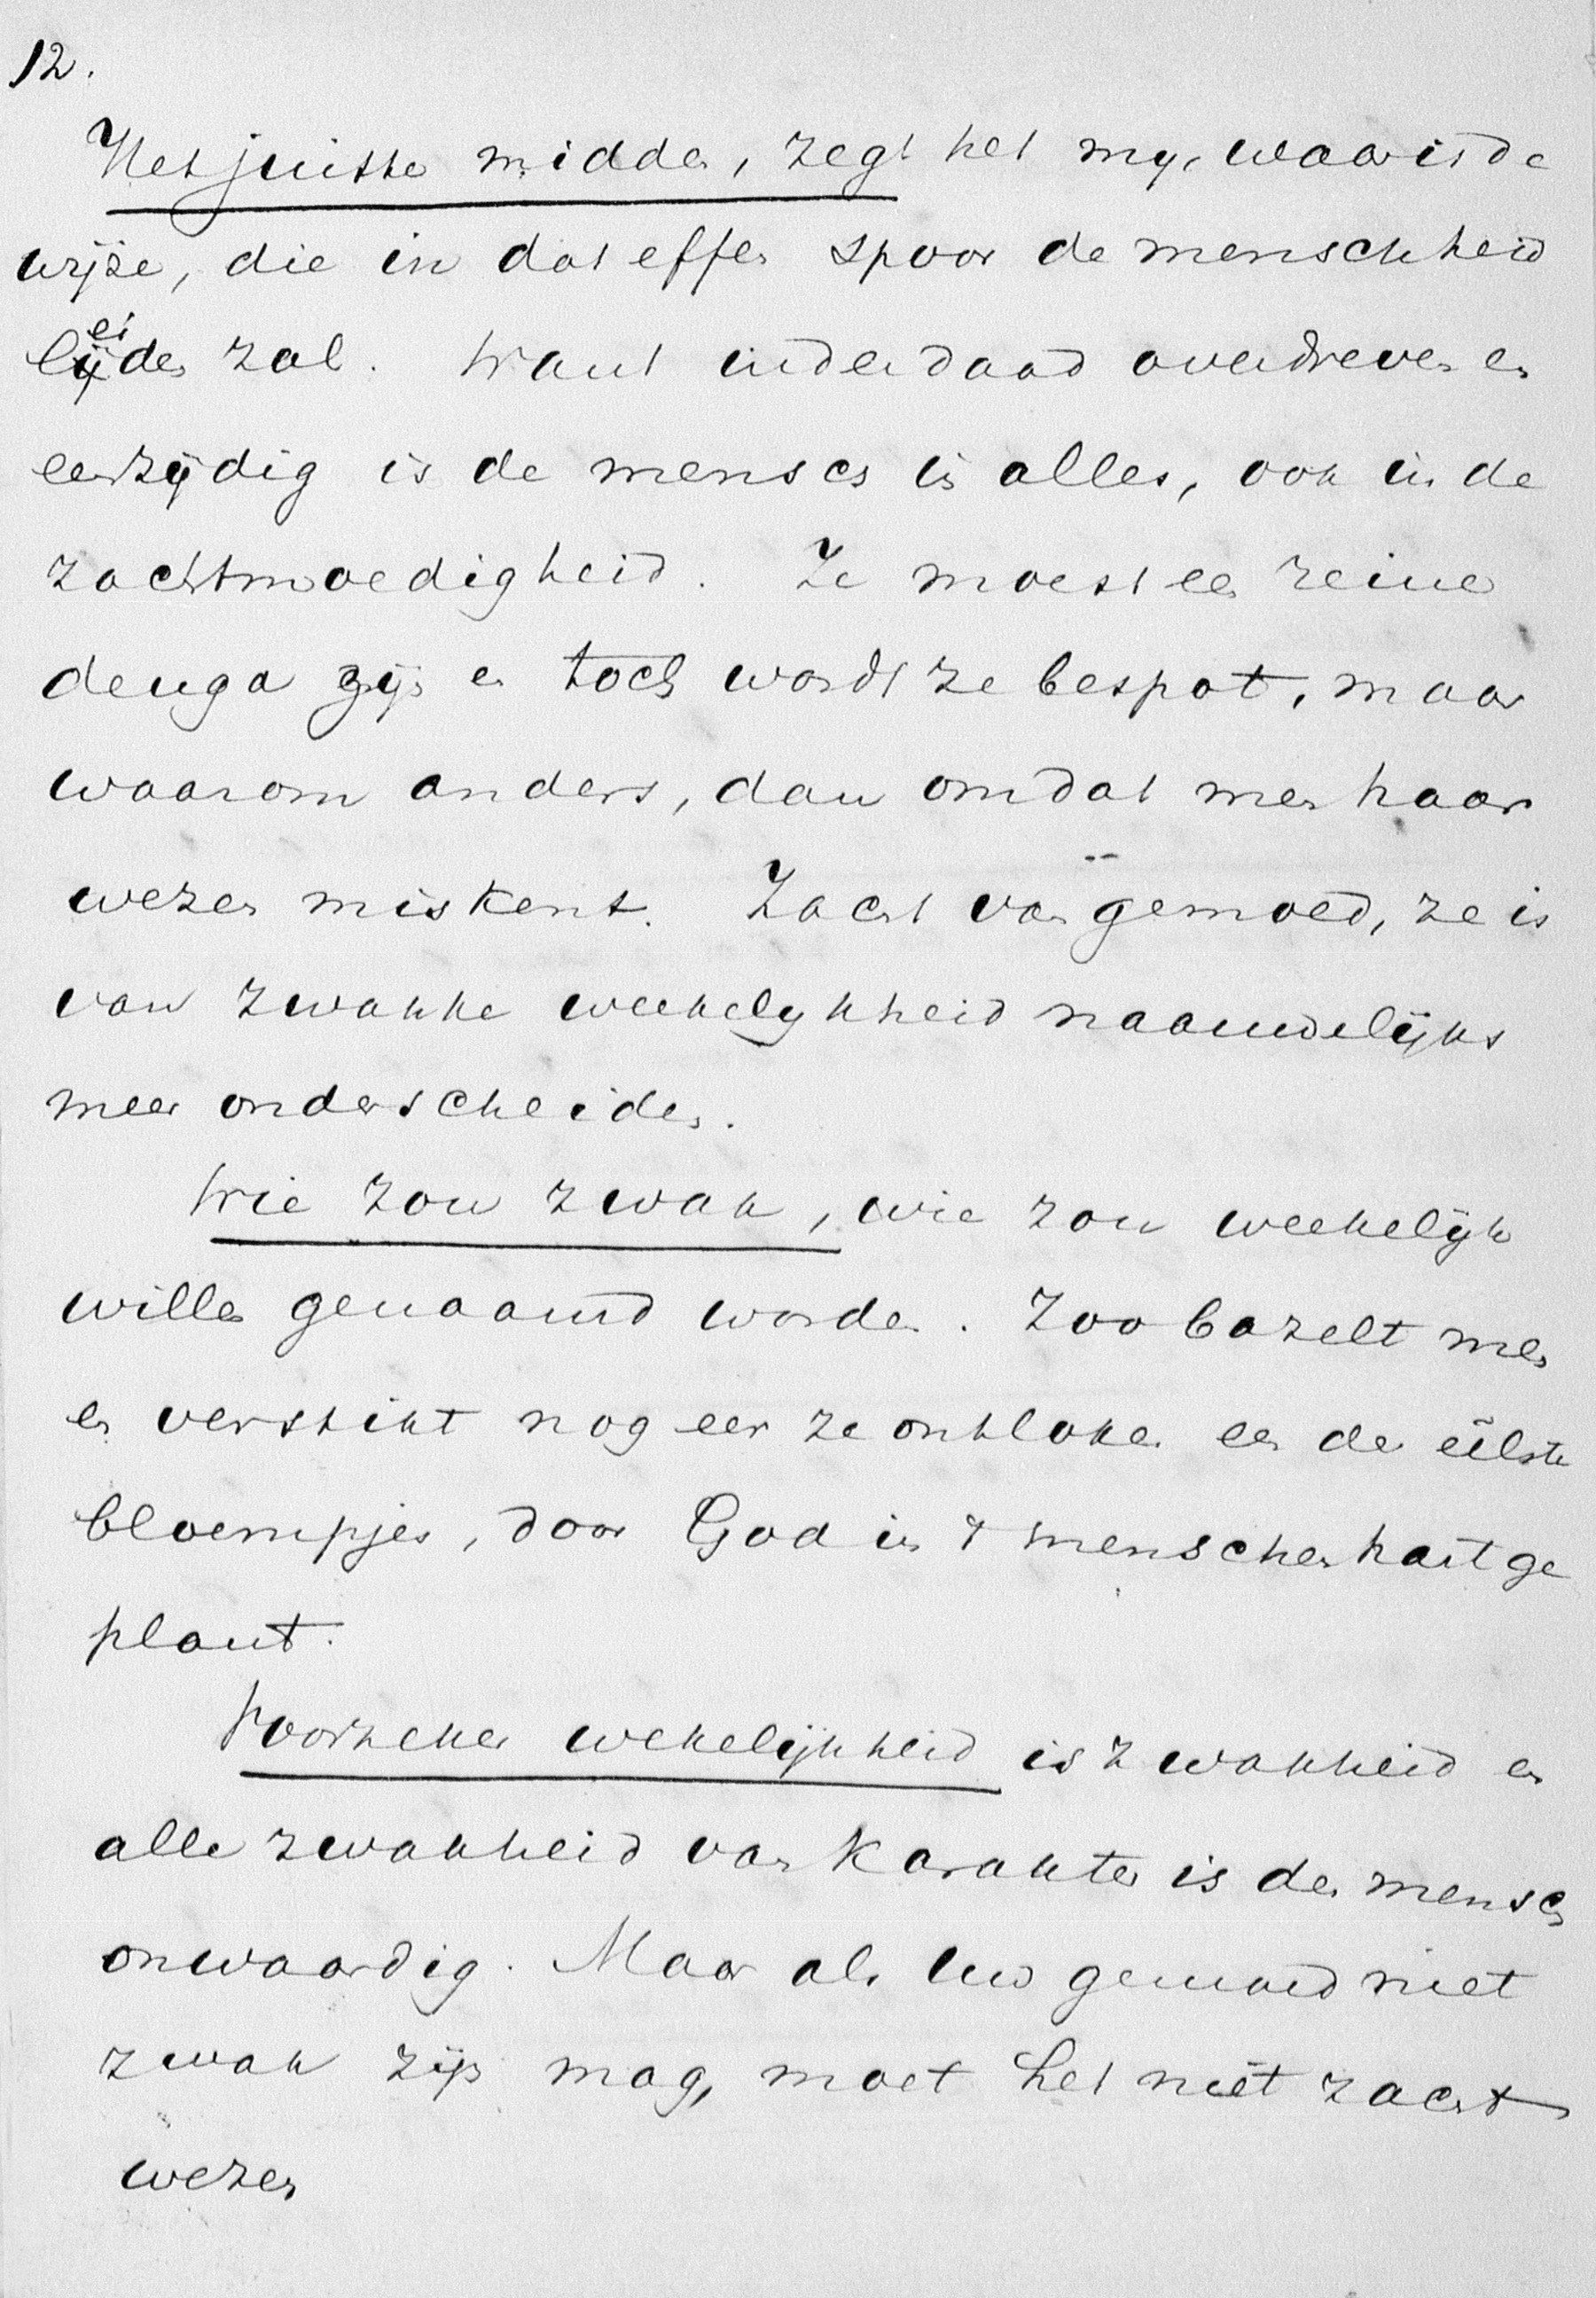 12.
Het juiste midden, zegt het mij, waar is de
wijze, die in dat effen spoor de menschheid
leiden zal. Want inderdaad overdreven en
eenzijdig is de mensch in alles, ook in de
zachtmoedigheid. Ze moest een reine
deugd zijn en toch wordt ze bespot, maar
waarom anders, dan omdat men haar
wezen miskent. Zacht van gemoed, ze is
van zwakke weekelijkheid naauwelijks
meer onderscheiden.
Wie zou zwak, wie zou weekelijk
willen genaamd worden. Zoo bazelt men
en verstikt nog eer ze ontloken een der eêlste
bloempjes, door God in 't menschenhart ge
plant.
Voorzeker wekelijkheid is zwakheid en
alle zwakheid van karakter is den mensch
onwaardig. Maar als uw gemoed niet
zwak zijn mag, moet het niet zacht
wezen